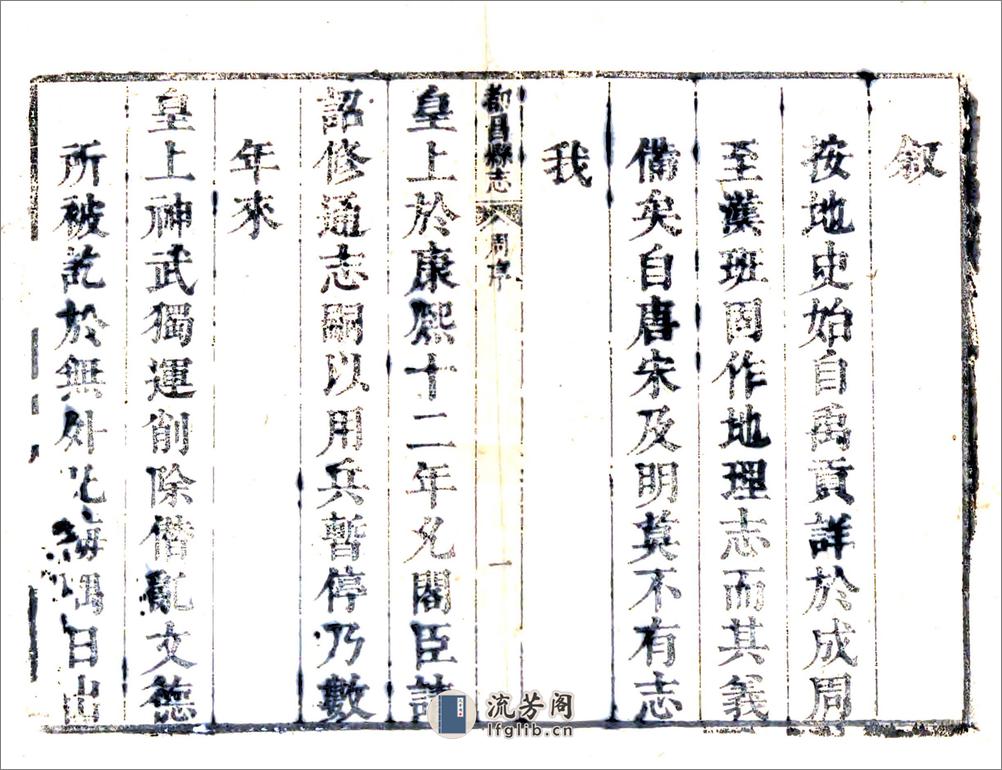 叙
按地史始自禹貢詳於成周
至漢班固作地理志而其義
備矣自唐宋及明莫不有志
我
都昌縣志 周序 一
皇上於康熙十二年允閣臣請
詔修通志嗣以用兵暫停乃數
年來
皇上神武獨運削除僭亂文德
所被訖於無外光海隅日出
流芳阁
lfglib.cn